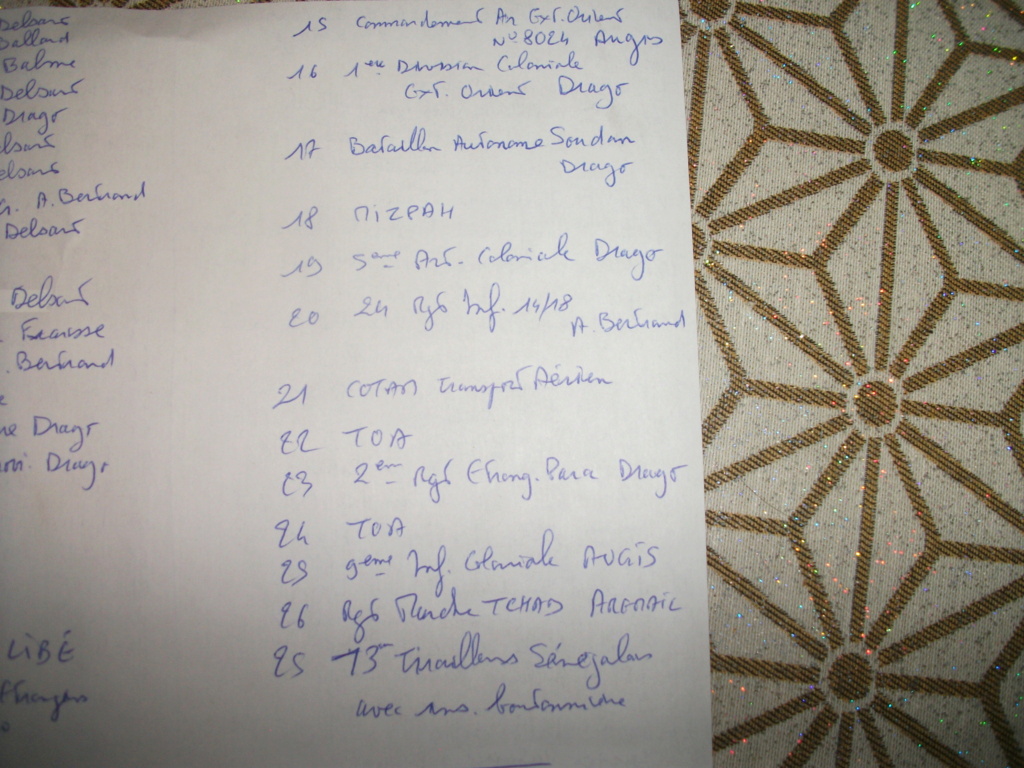 Delsart
Balland
Balme
Delsart
Drago
elsart
elsart
A. Bertrand
Delsart
Delsart
Fraisse
. Bertrand
ne Drago
Drago
LIBÉ
Etrangers
15 Commandement An Ext. Orient
N° 8024 Augis
16 1ère Division Coloniale
Ext. Orient Drago
17 Bataillon Autonome Soudan
Drago
18 MIZPAH
19 5ème Art. Coloniale Drago
20 24 Rgt Inf. 14/18
A. Bertrand
21 COTAM Transport Aérien
22 TOA
23 2em Rgt Etrang. Para Drago
24 TOA
25 9eme Inf. Coloniale AUGIS
26 Rgt Marche TCHAD AREMAIL
25 15 Tirailleurs Sénégalais
avec ins. boutonnière